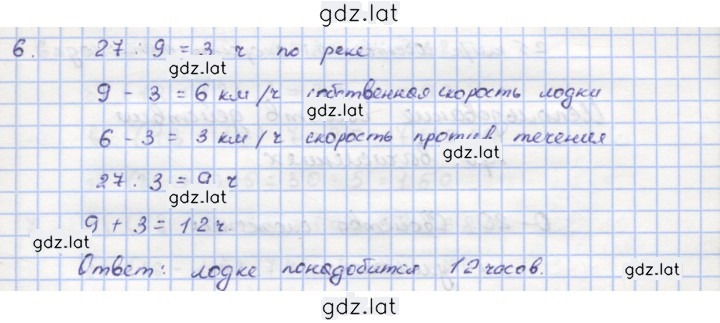 gdz.lat
6. 27 : 9 = 3 ч по реке
gdz.lat
9 - 3 = 6 км/ч собственная скорость лодки
gdz.lat
6 - 3 = 3 км/ч скорость против течения
gdz.lat
27 : 3 = 9 ч
gdz.lat
9 + 3 = 12 ч
gdz.lat
Ответ: лодке понадобится 12 часов.
gdz.lat
gdz.lat